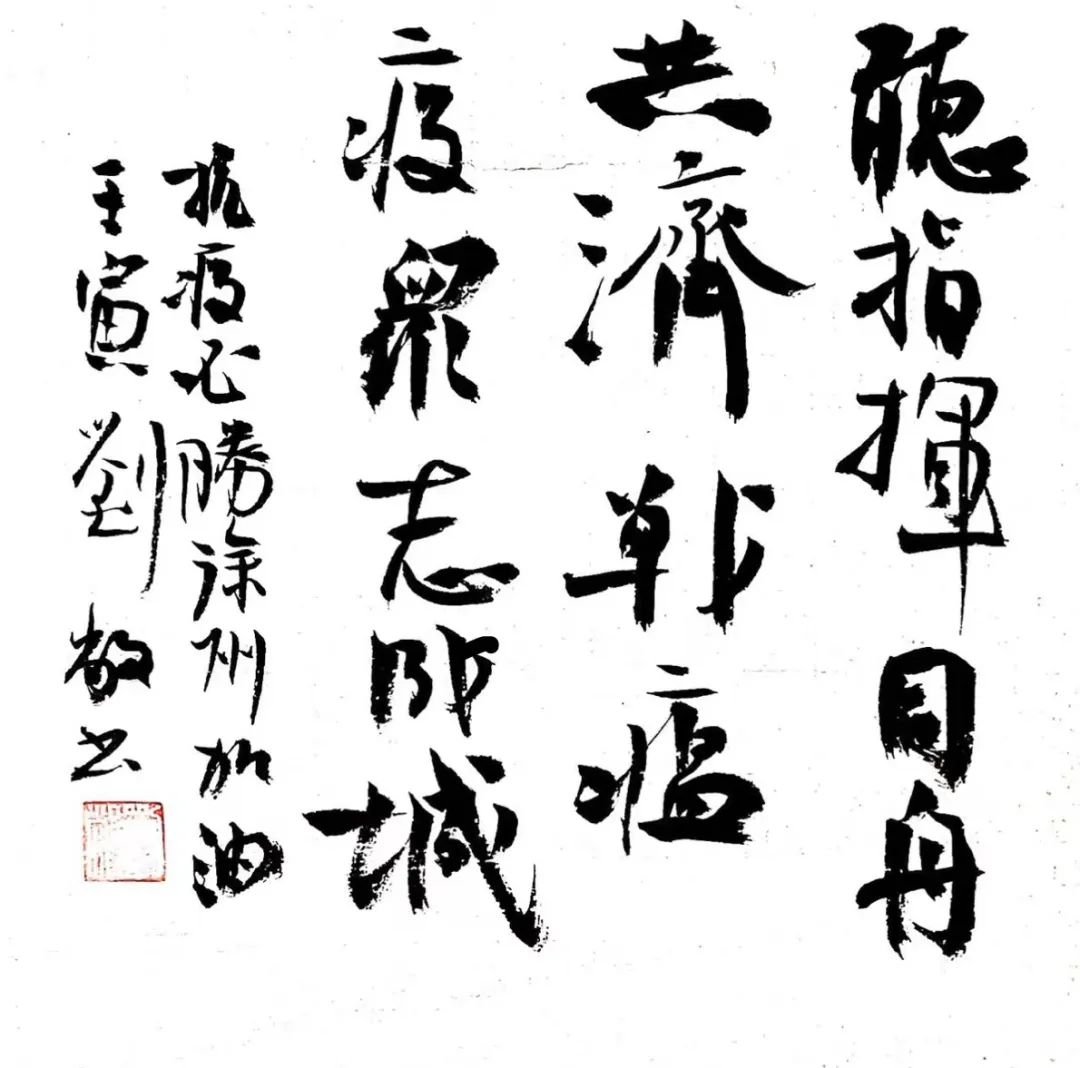 聽指揮同舟
共濟戰瘟
疫眾志成城
抗疫必勝徐州加油
壬寅劉敬书